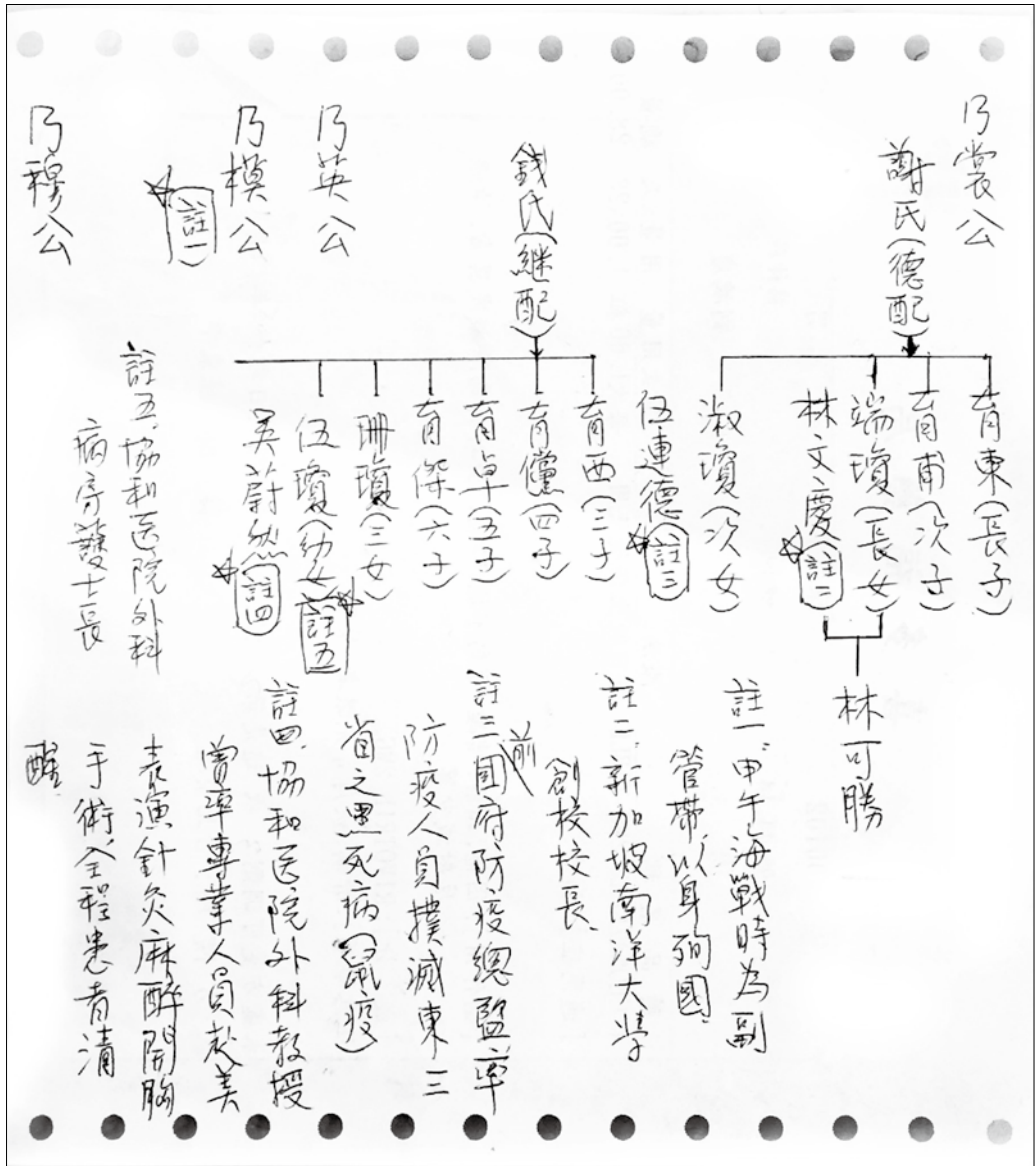 乃裳公
謝氏(德配)
育東(長子)
育甫(次子)
端瓊(長女)
林文慶(註二)
林可勝
淑瓊(次女)
伍連德(註三)
錢氏(継配)
育西(三子)
育儻(四子)
育卓(五子)
育傑(六子)
珊瓊(三女)
伍瓊(幼女)註五
吳蔚然(註四)
乃英公
乃模公
註一
乃穆公
註一、甲午海戰時為副
管帶,以身殉國.
註二、新加坡南洋大学
創校校長.
註三前國府防疫總監,率
防疫人員撲滅東三
省之黑死病(鼠疫)
註四、協和医院外科教授
曾率專業人員赴美
表演針灸麻醉開胸
手術,全程患者清
醒.
註五、協和医院外科
病房護士長